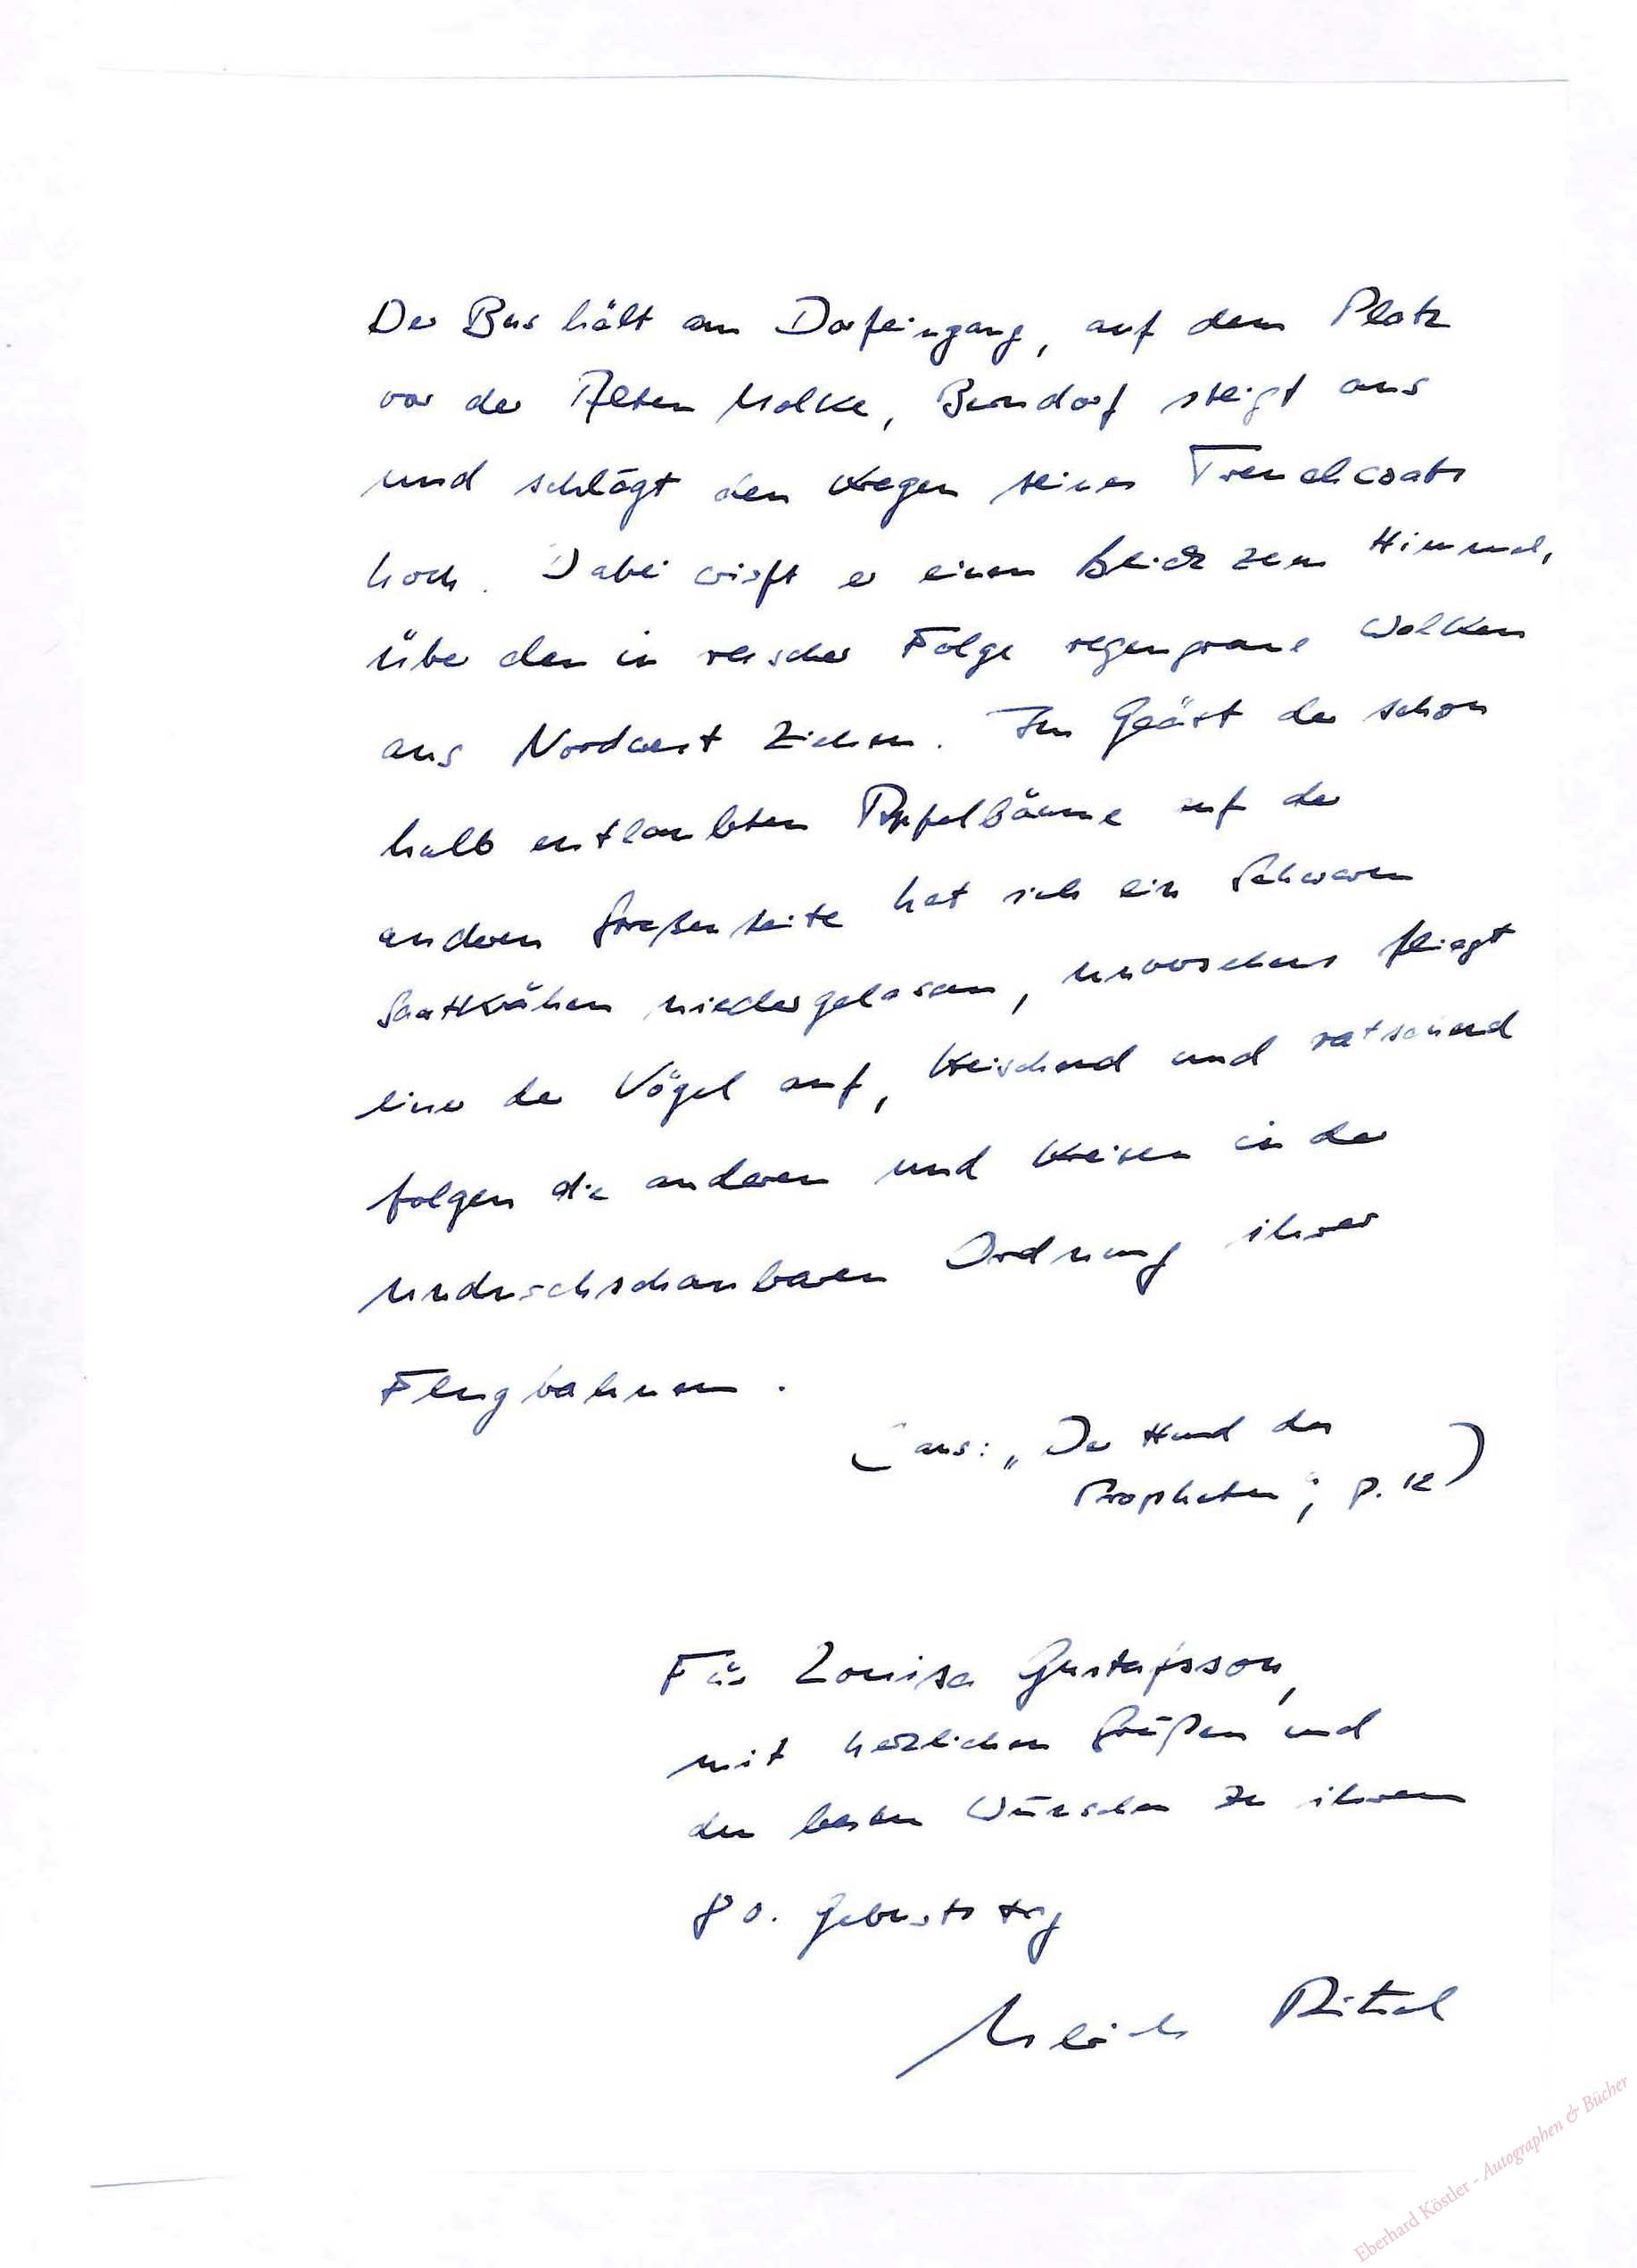 Der Bus hält am Dorfeingang, auf dem Platz
vor der Alten Molke, Berndorf steigt aus
und schlägt den Kragen seines Trenchcoats
hoch. Dabei wirft er einen Blick zum Himmel,
über den in rascher Folge regengraue Wolken
aus Nordwest ziehen. Im Geäst der schon
halb entlaubten Apfelbäume auf der
anderen Straßenseite hat sich ein Schwarm
Saatkrähen niedergelassen, unversehens fliegt
einer der Vögel auf, kreischend und ratschend
folgen die anderen und kreisen in der
undurchschaubaren Ordnung ihrer
Flugbahnen.
(aus: „Der Hund des
Propheten“, p. 12)
Für Louisa Gustafsson,
mit herzlichen Grüßen und
den besten Wünschen zu ihrem
80. Geburtstag
Ulrich Ritzel
Eberhard Köstler - Autographen & Bücher